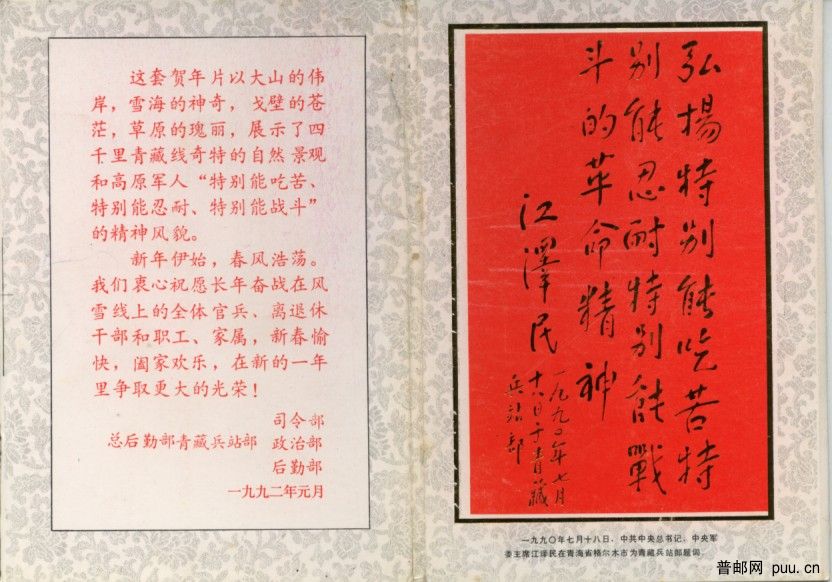 这套贺年片以大山的伟
岸，雪海的神奇，戈壁的苍
茫，草原的瑰丽，展示了四
千里青藏线奇特的自然景观
和高原军人“特别能吃苦、
特别能忍耐、特别能战斗”
的精神风貌。
新年伊始，春风浩荡。
我们衷心祝愿长年奋战在风
雪线上的全体官兵、离退休
干部和职工、家属，新春愉
快，阖家欢乐，在新的一年
里争取更大的光荣！
司令部
总后勤部青藏兵站部 政治部
后勤部
一九九二年元月
弘楊特别能吃苦特
别能忍耐特别能戰
斗的革命精神
江澤民
一九九〇年七月
十八日于青藏
兵站部
一九九〇年七月十八日、中共中央总书记、中央军
委主席江泽民在青海省格尔木市为青藏兵站部题词
普邮网 puu.cn